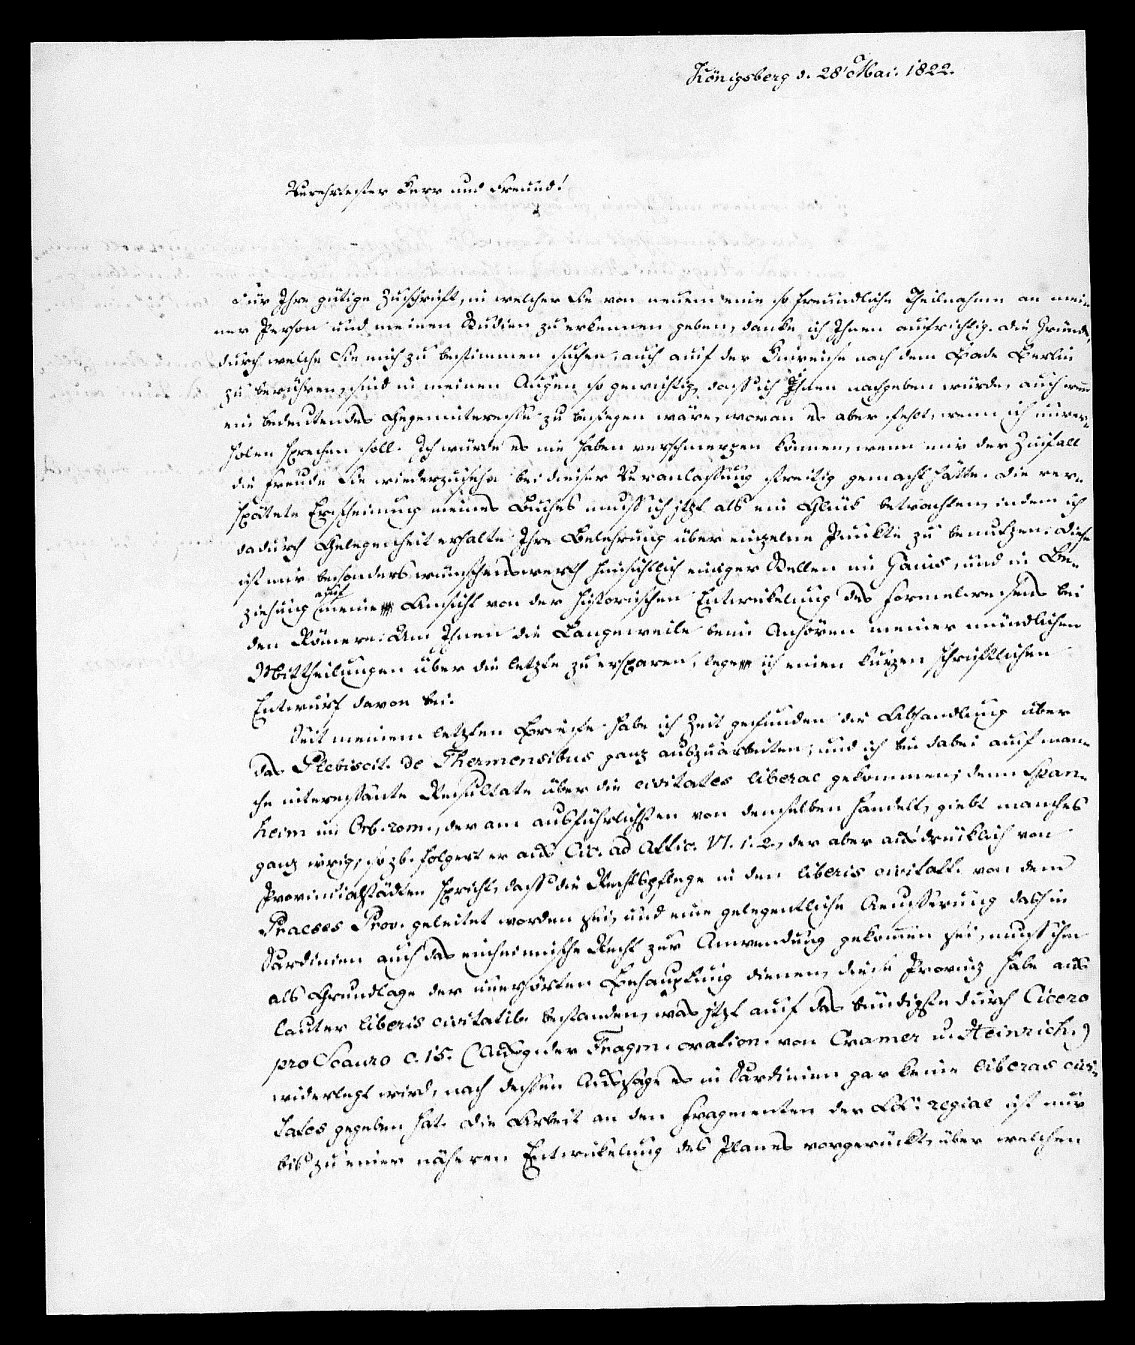 Königsberg d. 28 Mai. 1822.
Verehrtester Herr und Freund!
Für Ihre gütige Zuschrift, in welcher Sie von neuem eine so freundliche Theilnahme an mei-
ner Person und meinen Studien zu erkennen geben, danke ich Ihnen aufrichtig. Die Gründe,
durch welche Sie mich zu bestimmen suchen, auch auf der Hinreise nach dem Bade Berlin
zu berühren, sind in meinen Augen so gewichtig, dass ich Ihnen nachgeben würde, auch wenn
ein bedeutendes Gegeninteresse zu besiegen wäre, woran es aber fehlt, wenn ich unver-
holen sprechen soll. Ich würde es nie haben verschmerzen können, wenn mir der Zufall
die Freude Sie wiederzusehn bei dieser Veranlassung streitig gemacht hätte. Die ver-
spätete Erscheinung meines Buches muss ich jetzt als ein Glük betrachten, indem ich
dadurch Gelegenheit erhalte Ihre Belehrung über einzelne Punkte zu benutzen. Diese
ist mir besonders wünschenswerth hinsichtlich einiger Stellen im Gaius, und in Be-
ziehung auf meine Ansicht von der historischen Entwikelung des Formelwesens bei
den Römern. Um Ihnen die Langeweile beim Anhören meiner mündlichen
Mittheilungen über die letzte zu ersparen, lege ich einen kurzen schriftlichen
Entwurf davon bei.
Seit meinem letzten Briefe habe ich Zeit gefunden die Abhandlung über
das Plebiscit. de Thermensibus ganz auszuarbeiten, und ich bin dabei auf man-
che interessante Resultate über die civitates liberae gekommen; denn Span-
heim im Orb. rom., der am ausführlichsten von denselben handelt, giebt manches
ganz irrig, so zb. folgert er aus Cic. ad Attic. VI. 1. 2., der aber ausdrücklich von
Provincialstädten spricht, dass die Rechtspflege in den liberis civitatt. von dem
Praeses Prov. geleitet worden sei, und eine gelegentliche Aeusserung dass in
Sardinien auch das einheimische Recht zur Anwendung gekommen sei, muss ihm
als Grundlage der unerhörten Behauptung dienen, diese Provinz habe aus
lauter liberis civitatib. bestanden, was jetzt auf das bündigste durch Cicero
pro Scauro c. 15. (Ausg. der Fragm. oration. von Cramer u. Heinrich.)
widerlegt wird, nach dessen Aussage es in Sardinien gar keine liberas civi-
tates gegeben hat. Die Arbeit an den Fragmenten der LL. regiae ist nur
bis zu einer näheren Entwikelung des Planes vorgerückt, über welchen